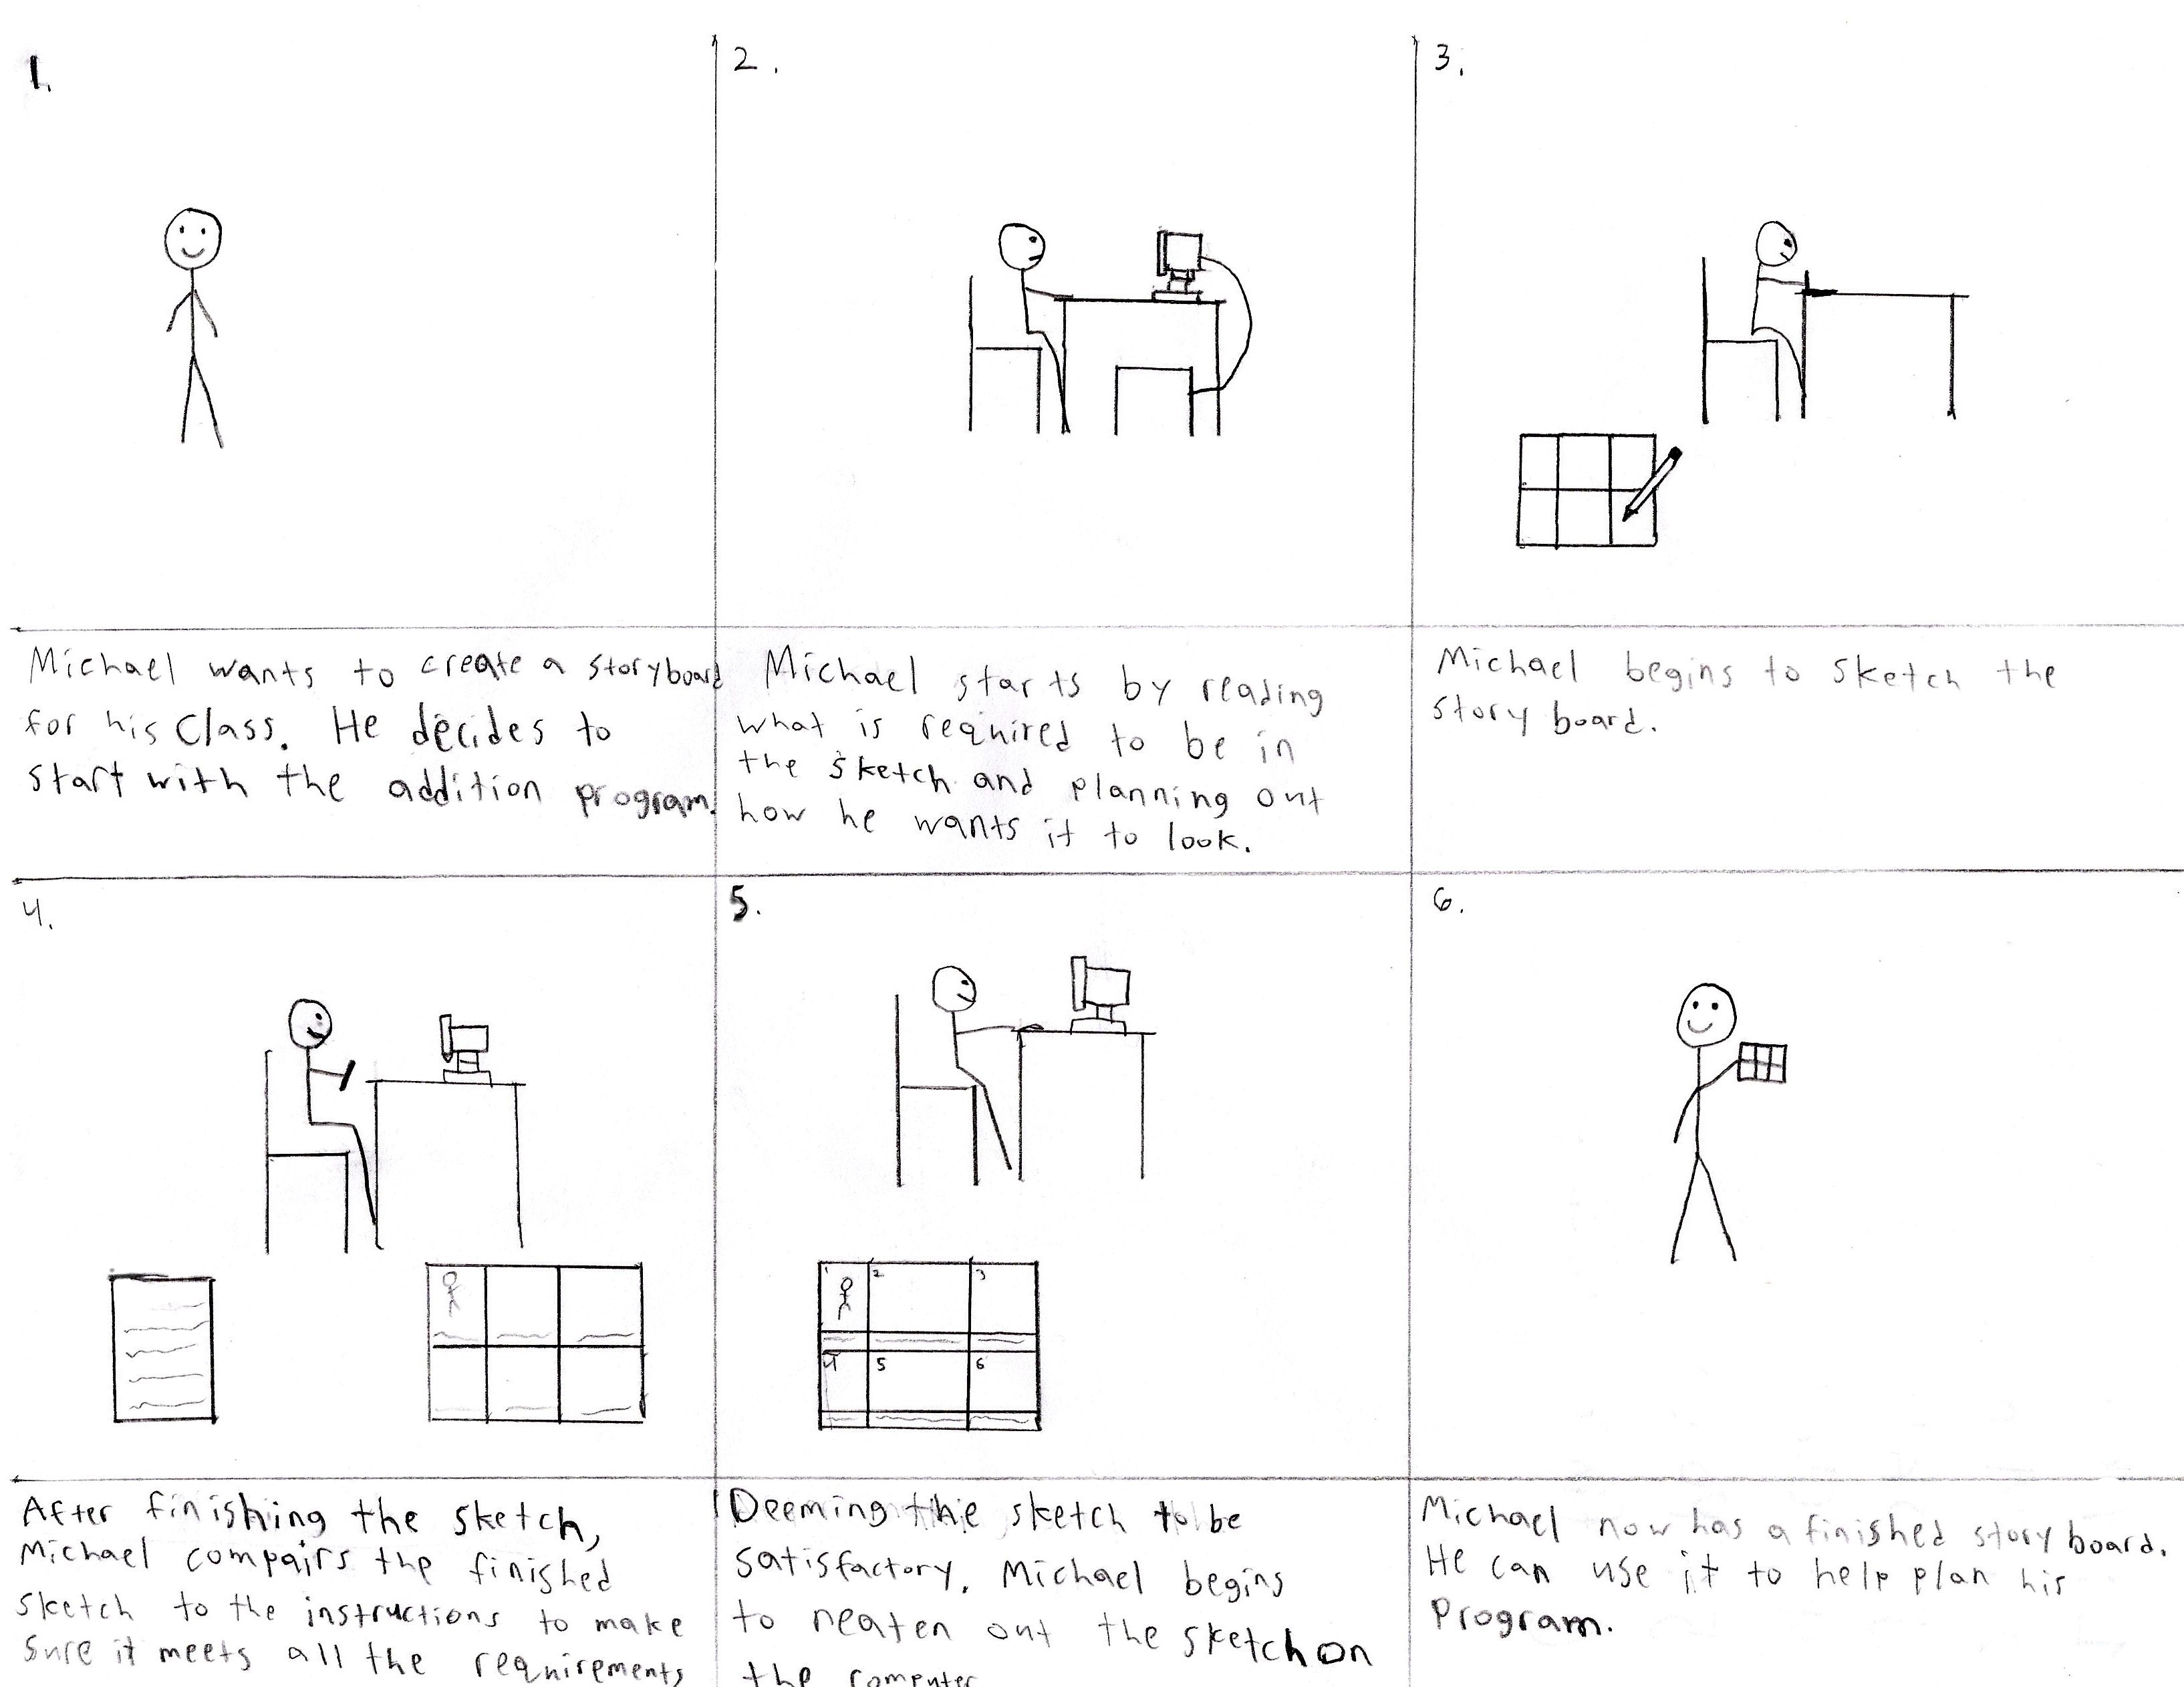 1.
Michael wants to create a storyboard
for his Class. He decides to
start with the addition program.
2.
Michael starts by reading
what is required to be in
the sketch and planning out
how he wants it to look.
3.
Michael begins to sketch the
story board.
4.
After finishing the sketch,
Michael compairs the finished
sketch to the instructions to make
sure it meets all the requirements
5.
1 2 3
4 5 6
Deeming the sketch to be
satisfactory, Michael begins
to neaten out the sketch on
the computer
6.
Michael now has a finished story board.
He can use it to help plan his
program.